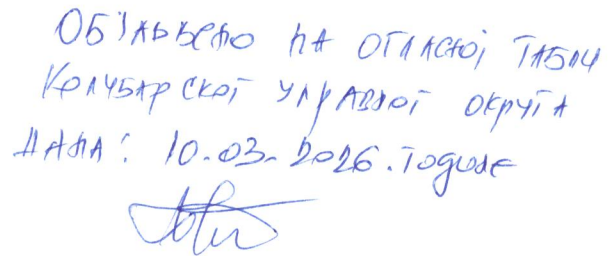 ОБЈАВЉЕНО НА ОГЛАСНОЈ ТАБЛИ
КОЛУБАРСКОГ УПРАВНОГ ОКРУГА
ДАНА: 10.03.2026. године